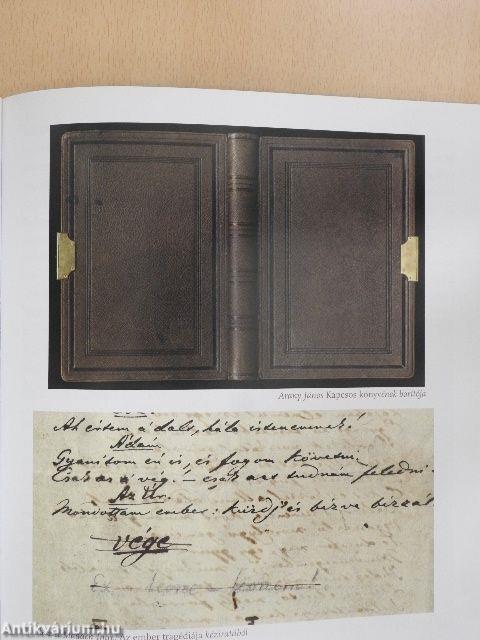 Arany János Kapcsos könyvének borítója
Ah értem a dalt, hála istenemnek!
Ádám
Gyanítom én is, és fogom követni.
Csak az a vég. – csak azt tudnám feledni.
Az Úr.
Mondottam ember: küzdj és bízva bízzál.
vége
Az ember tragédiája kéziratából
Antikvárium.hu